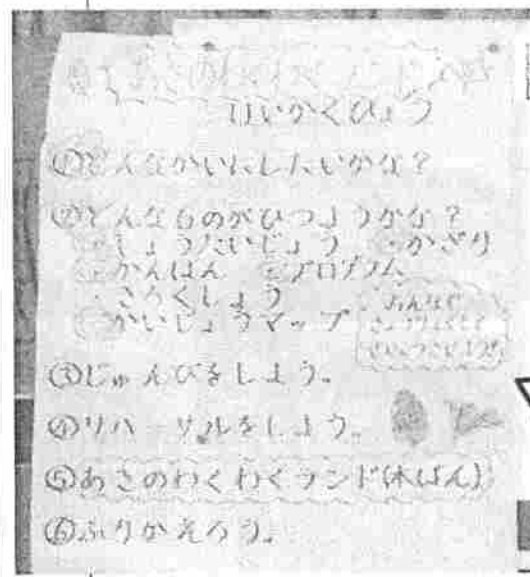 けいかくひょう
①どんなかいにしたいかな?
②どんなものがひつようかな?
・しょうたいじょう ・かざり
・かんばん ・プログラム
・きろくしょう
・かいじょうマップ
みんなで
きょうりょくして
③じゅんびをしよう。
④リハーサルをしよう。
⑤あきのわくわくランド(本ばん)
⑥ふりかえろう。